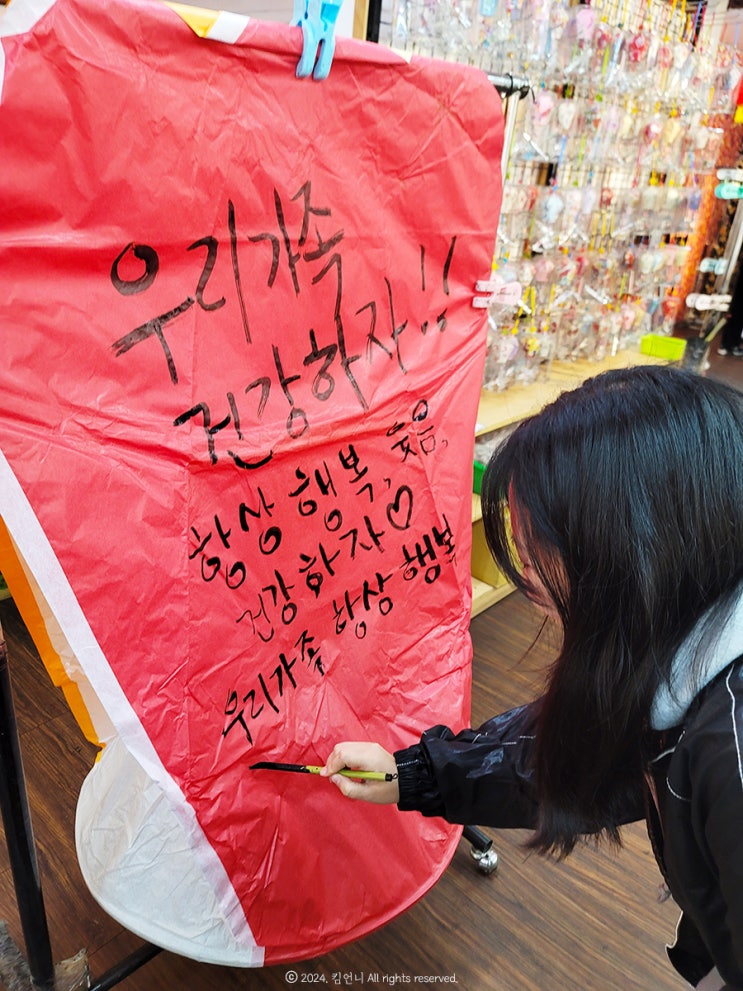 우리가족
건강하자!!
항상 행복, 웃음,
건강하자♡
우리가족 항상 행복
ⓒ 2024. 킴언니 All rights reserved.